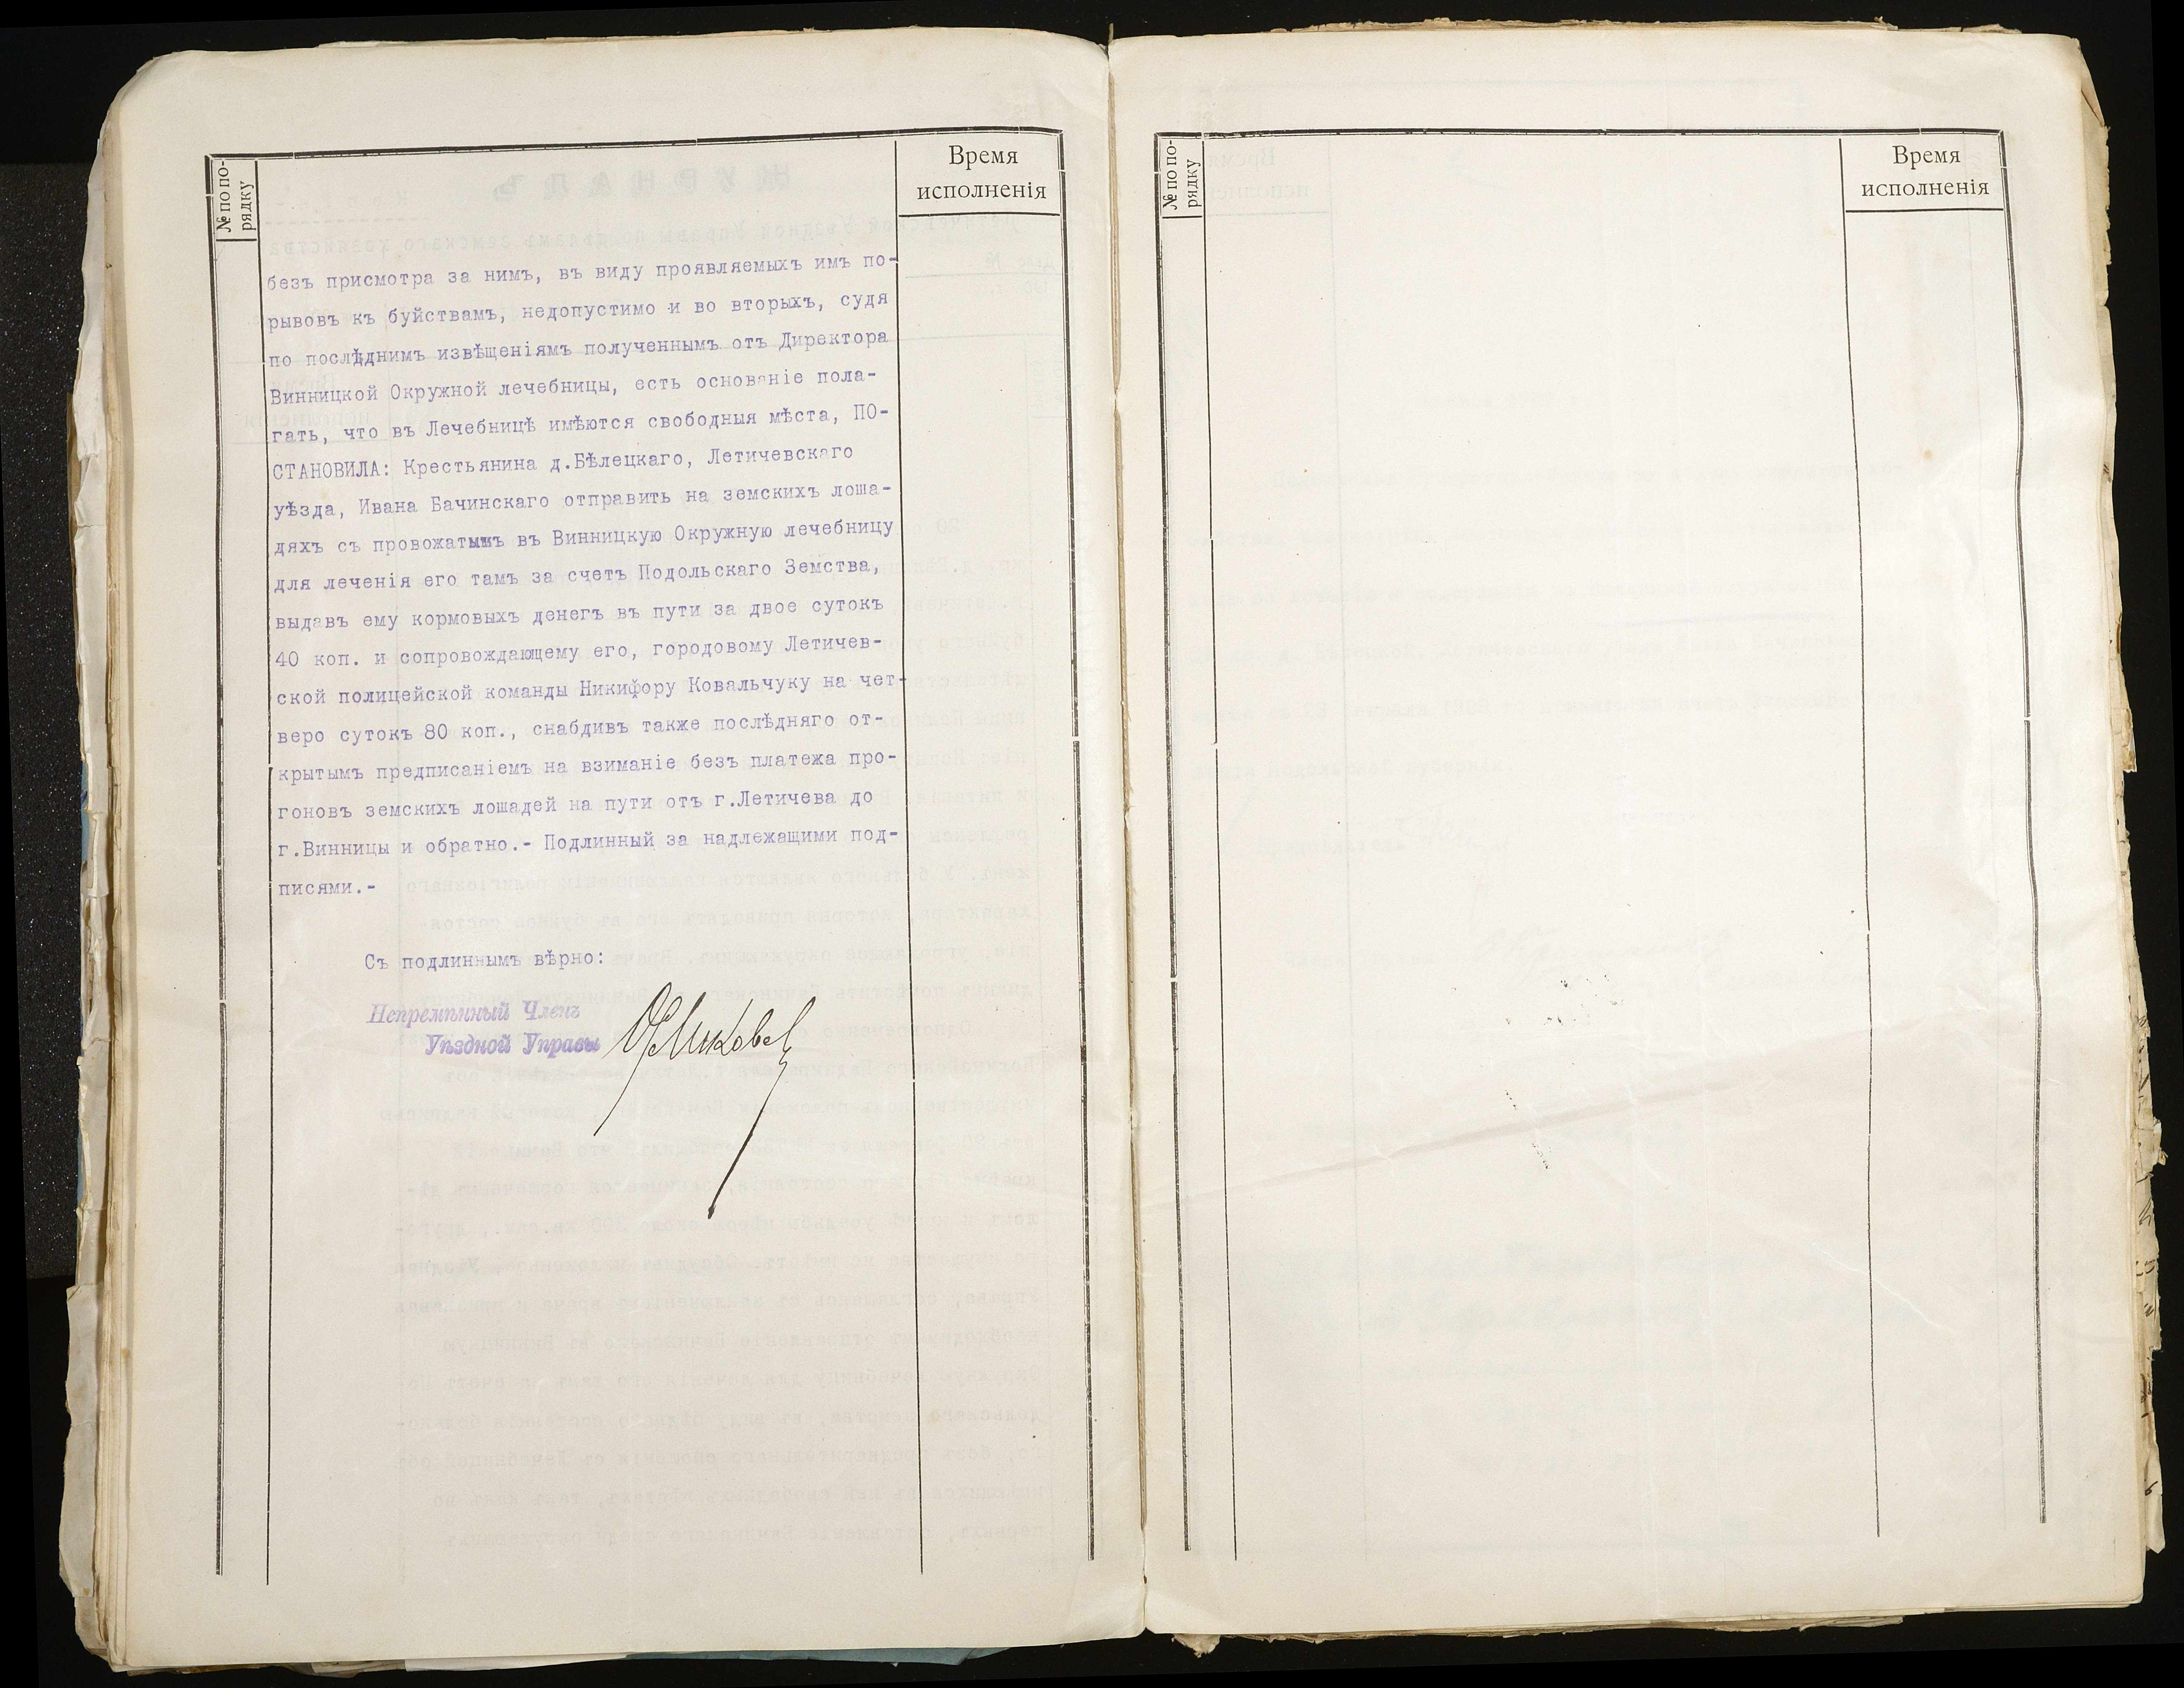 № по по-
рядку
Время
исполненія
безъ присмотра за нимъ, въ виду проявляемыхъ имъ по-
рывовъ къ буйствамъ, недопустимо и во вторыхъ, судя
по послѣднимъ извѣщеніямъ полученнымъ отъ Директора
Винницкой Окружной лечебницы, есть основаніе пола-
гать, что въ Лечебницѣ имѣются свободныя мѣста, ПО-
СТАНОВИЛА: Крестьянина д.Бѣлецкаго, Летичевскаго
уѣзда, Ивана Бачинскаго отправить на земскихъ лоша-
дяхъ съ провожатымъ въ Винницкую Окружную лечебницу
для леченія его тамъ за счетъ Подольскаго Земства,
выдавъ ему кормовыхъ денегъ въ пути за двое сутокъ
40 коп. и сопровождающему его, городовому Летичев-
ской полицейской команды Никифору Ковальчуку на чет-
веро сутокъ 80 коп., снабдивъ также послѣдняго от-
крытымъ предписаніемъ на взиманіе безъ платежа про-
гоновъ земскихъ лошадей на пути отъ г.Летичева до
г.Винницы и обратно.- Подлинный за надлежащими под-
писями.-
Съ подлиннымъ вѣрно:
Непремѣнный Членъ
Уѣздной Управы
№ по по-
рядку
Время
исполненія